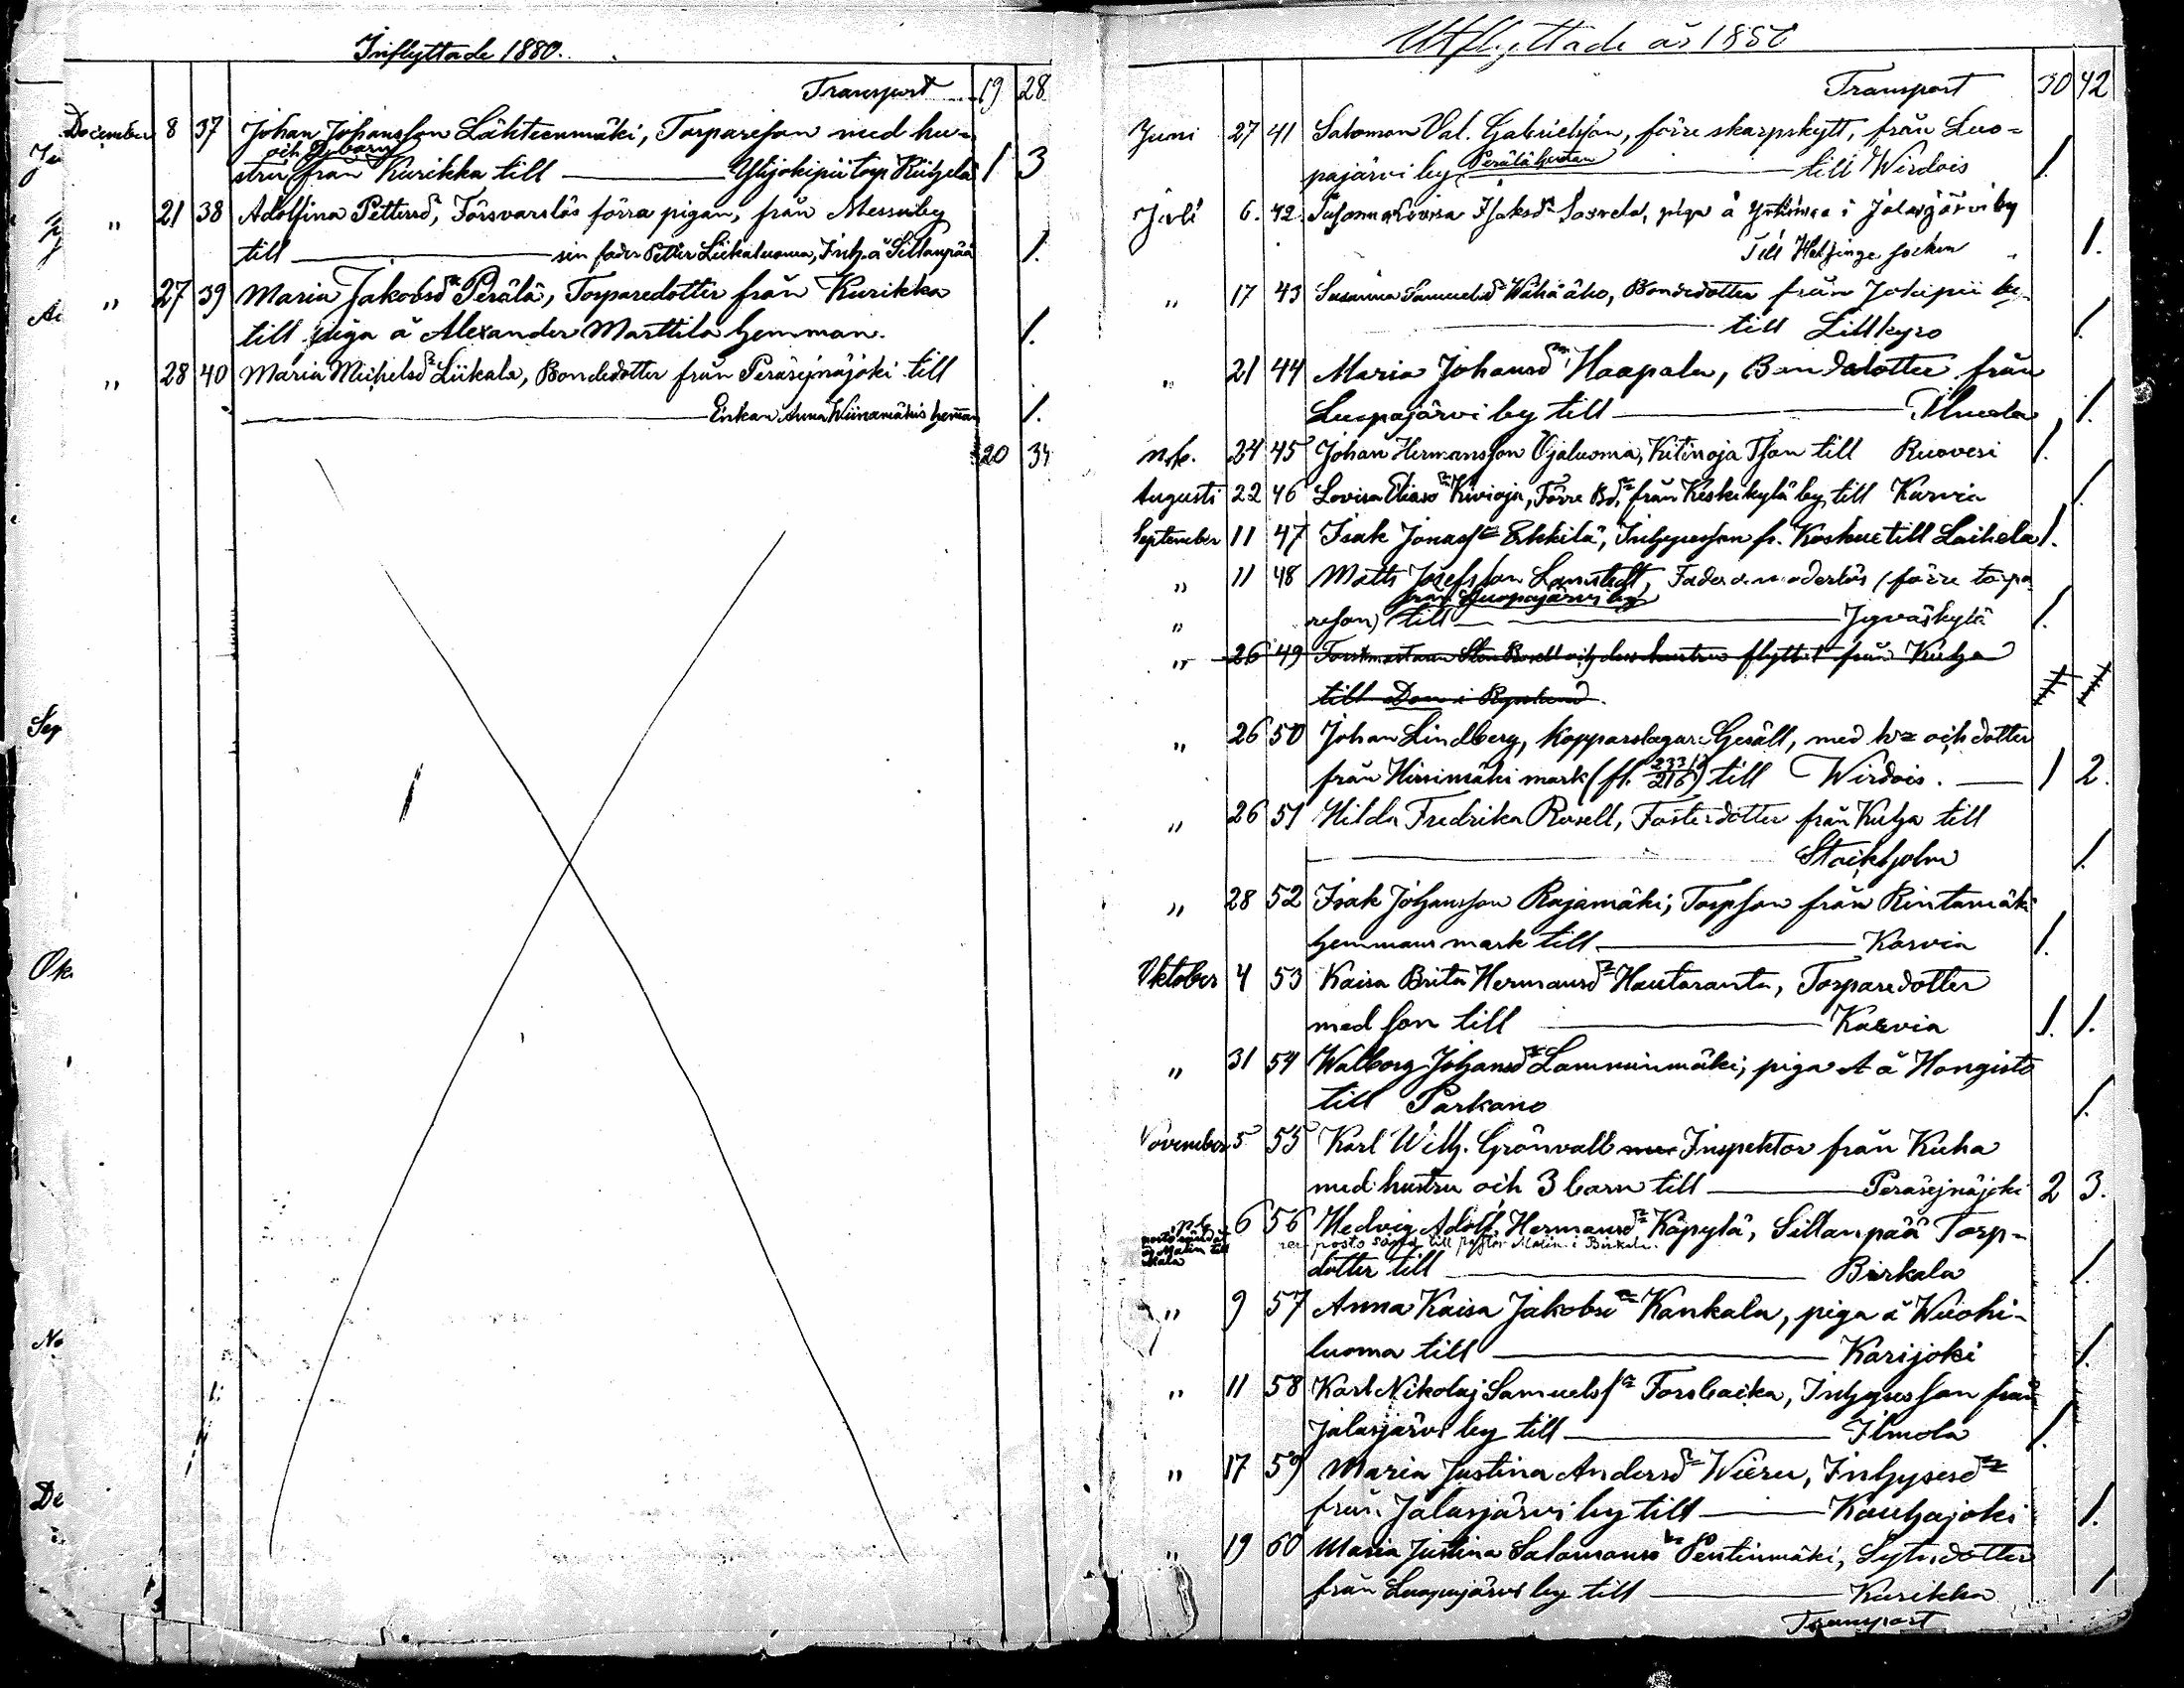 Inflyttade 1880.
Transport 19 28
December 8 37 Johan Johansson Lähteenmäki, Torpareson med hu-
och barn
stru från Kurikka till Ylijokipii torp Kuhjela 1 3
" 21 38 Adolfina Pettersdr, Försvarslös förra pigan, från Messuby
till sin fader Petter Liikaluoma, Inh. å Sillanpää 1.
" 27 39 Maria Jakobsdr Perälä, Torparedotter från Kurikka
till piga å Alexander Marttila hemman. 1.
" 28 40 Maria Michelsdr Liikala, Bondedotter från Peräseinäjoki till
Enkan Anna Wiinamäkis heman 1.
20 34
Sep
Ok
No
De
Utflyttade år 1880
Transport 30 42
Juni 27 41 Salomon Val. Gabrielsson, förre skarpskytt, från Luo-
pajärvi by, Perälä till Wirdois 1.
Juli 6. 42. Susanna Lovisa Isaksdr piga å i Jalasjärvi by
Till Helsinge socken 1.
" 17 43 Susanna Samuelsdr Wähä äho, Bondedotter från Jokipii by
till Lillkyro 1.
" 21 44 Maria Johansdr Haapala, Bondedotter från
Luopajärvi by till Ilmola 1.
24 45 Johan Hermansson Ojaluoma, Kitinoja Tson till Ruovesi 1.
Augusti 22 46 Lovisa Eliasdr Kivioja, Förre Bd. från Keskikylä by, till Karvia 1.
September 11 47 Isak Jonass Erkkilä, Inhysesson fr. Koskue till Laihela 1.
" 11 48 Matts Josefsson Lannstedt, Fader o. moderlös (förre torpa
från Luopajärvi by
" reson) till Jyväskylä 1.
" 26 49 Forstmästaren Sten Rosell och dess hustru flyttat från Kuha
till Don i Ryssland.
" 26 50 Johan Lindberg, Kopparslagare Gesäll, med h. och dotter
från Hirvimäki mark (fl. 233/216) till Wirdois. 1 2.
" 26 51 Hilda Fredrika Rosell, Fosterdotter från Kuha till
Stockholm 1.
" 28 52 Isak Johansson Rajamäki, Torpson från Rintamäki
hemmans mark till Karvia 1.
Oktober 4 53 Kaisa Brita Hermansdr Hautaranta, Torparedotter
med son till Karvia 1. 1.
" 31 54 Walborg Johansdr Lamminmäki, piga å Hongisto
till Parkano 1.
November 5 55 Karl Wilh. Grönvall Inspektor från Kuha
med hustru och 3 barn till Peräseinäjoki 2 3.
6 56 Hedvig Adolf. Hermansdr Käpylä, Sillanpää Torp-
posto sänd till pastor Malin i Birkala.
dotter till Birkala 1.
" 9 57 Anna Kaisa Jakobsdr Kankala, piga å Wuohi-
luoma till Karijoki 1.
" 11 58 Karl Nikolaj Samuelss Forsbacka, Inhyses son från
Jalasjärvi by till Ilmola 1.
" 17 59 Maria Justina Andersdr Wieru, Inhysesdr
från Jalasjärvi by till Kauhajoki 1.
" 19 60 Maria Justina Salomonsdr Penttinmäki, Sytn.dotter
från Luopajärvi by till Kurikka 1
Transport